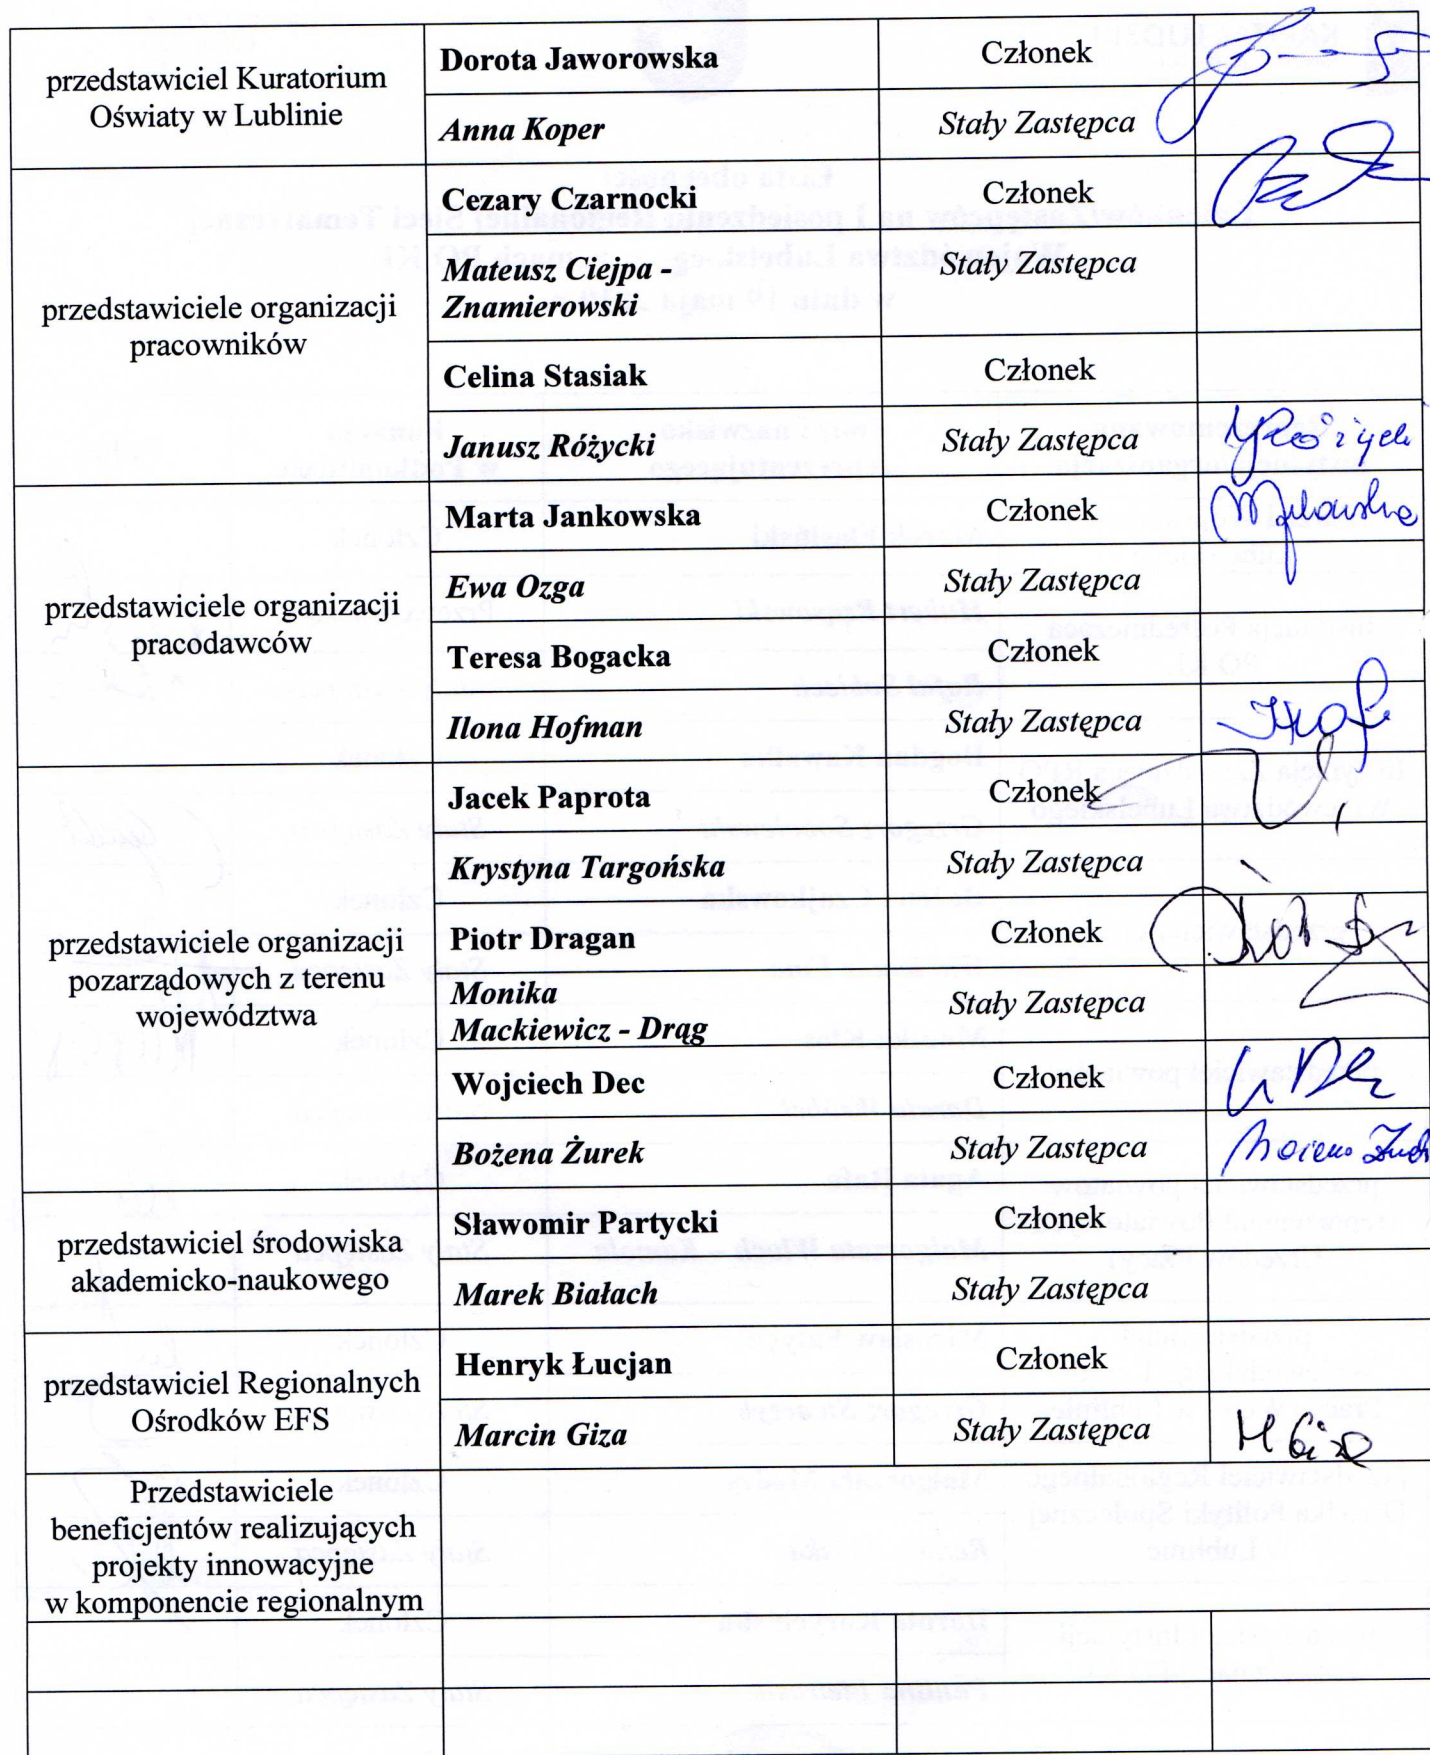 przedstawiciel Kuratorium
Oświaty w Lublinie
Dorota Jaworowska Członek
Anna Koper Stały Zastępca
przedstawiciele organizacji
pracowników
Cezary Czarnocki Członek
Mateusz Ciejpa -
Znamierowski
Stały Zastępca
Celina Stasiak Członek
Janusz Różycki Stały Zastępca
przedstawiciele organizacji
pracodawców
Marta Jankowska Członek
Ewa Ozga Stały Zastępca
Teresa Bogacka Członek
Ilona Hofman Stały Zastępca
przedstawiciele organizacji
pozarządowych z terenu
województwa
Jacek Paprota Członek
Krystyna Targońska Stały Zastępca
Piotr Dragan Członek
Monika
Mackiewicz - Drąg
Stały Zastępca
Wojciech Dec Członek
Bożena Żurek Stały Zastępca
przedstawiciel środowiska
akademicko-naukowego
Sławomir Partycki Członek
Marek Białach Stały Zastępca
przedstawiciel Regionalnych
Ośrodków EFS
Henryk Łucjan Członek
Marcin Giza Stały Zastępca M Giza
Przedstawiciele
beneficjentów realizujących
projekty innowacyjne
w komponencie regionalnym